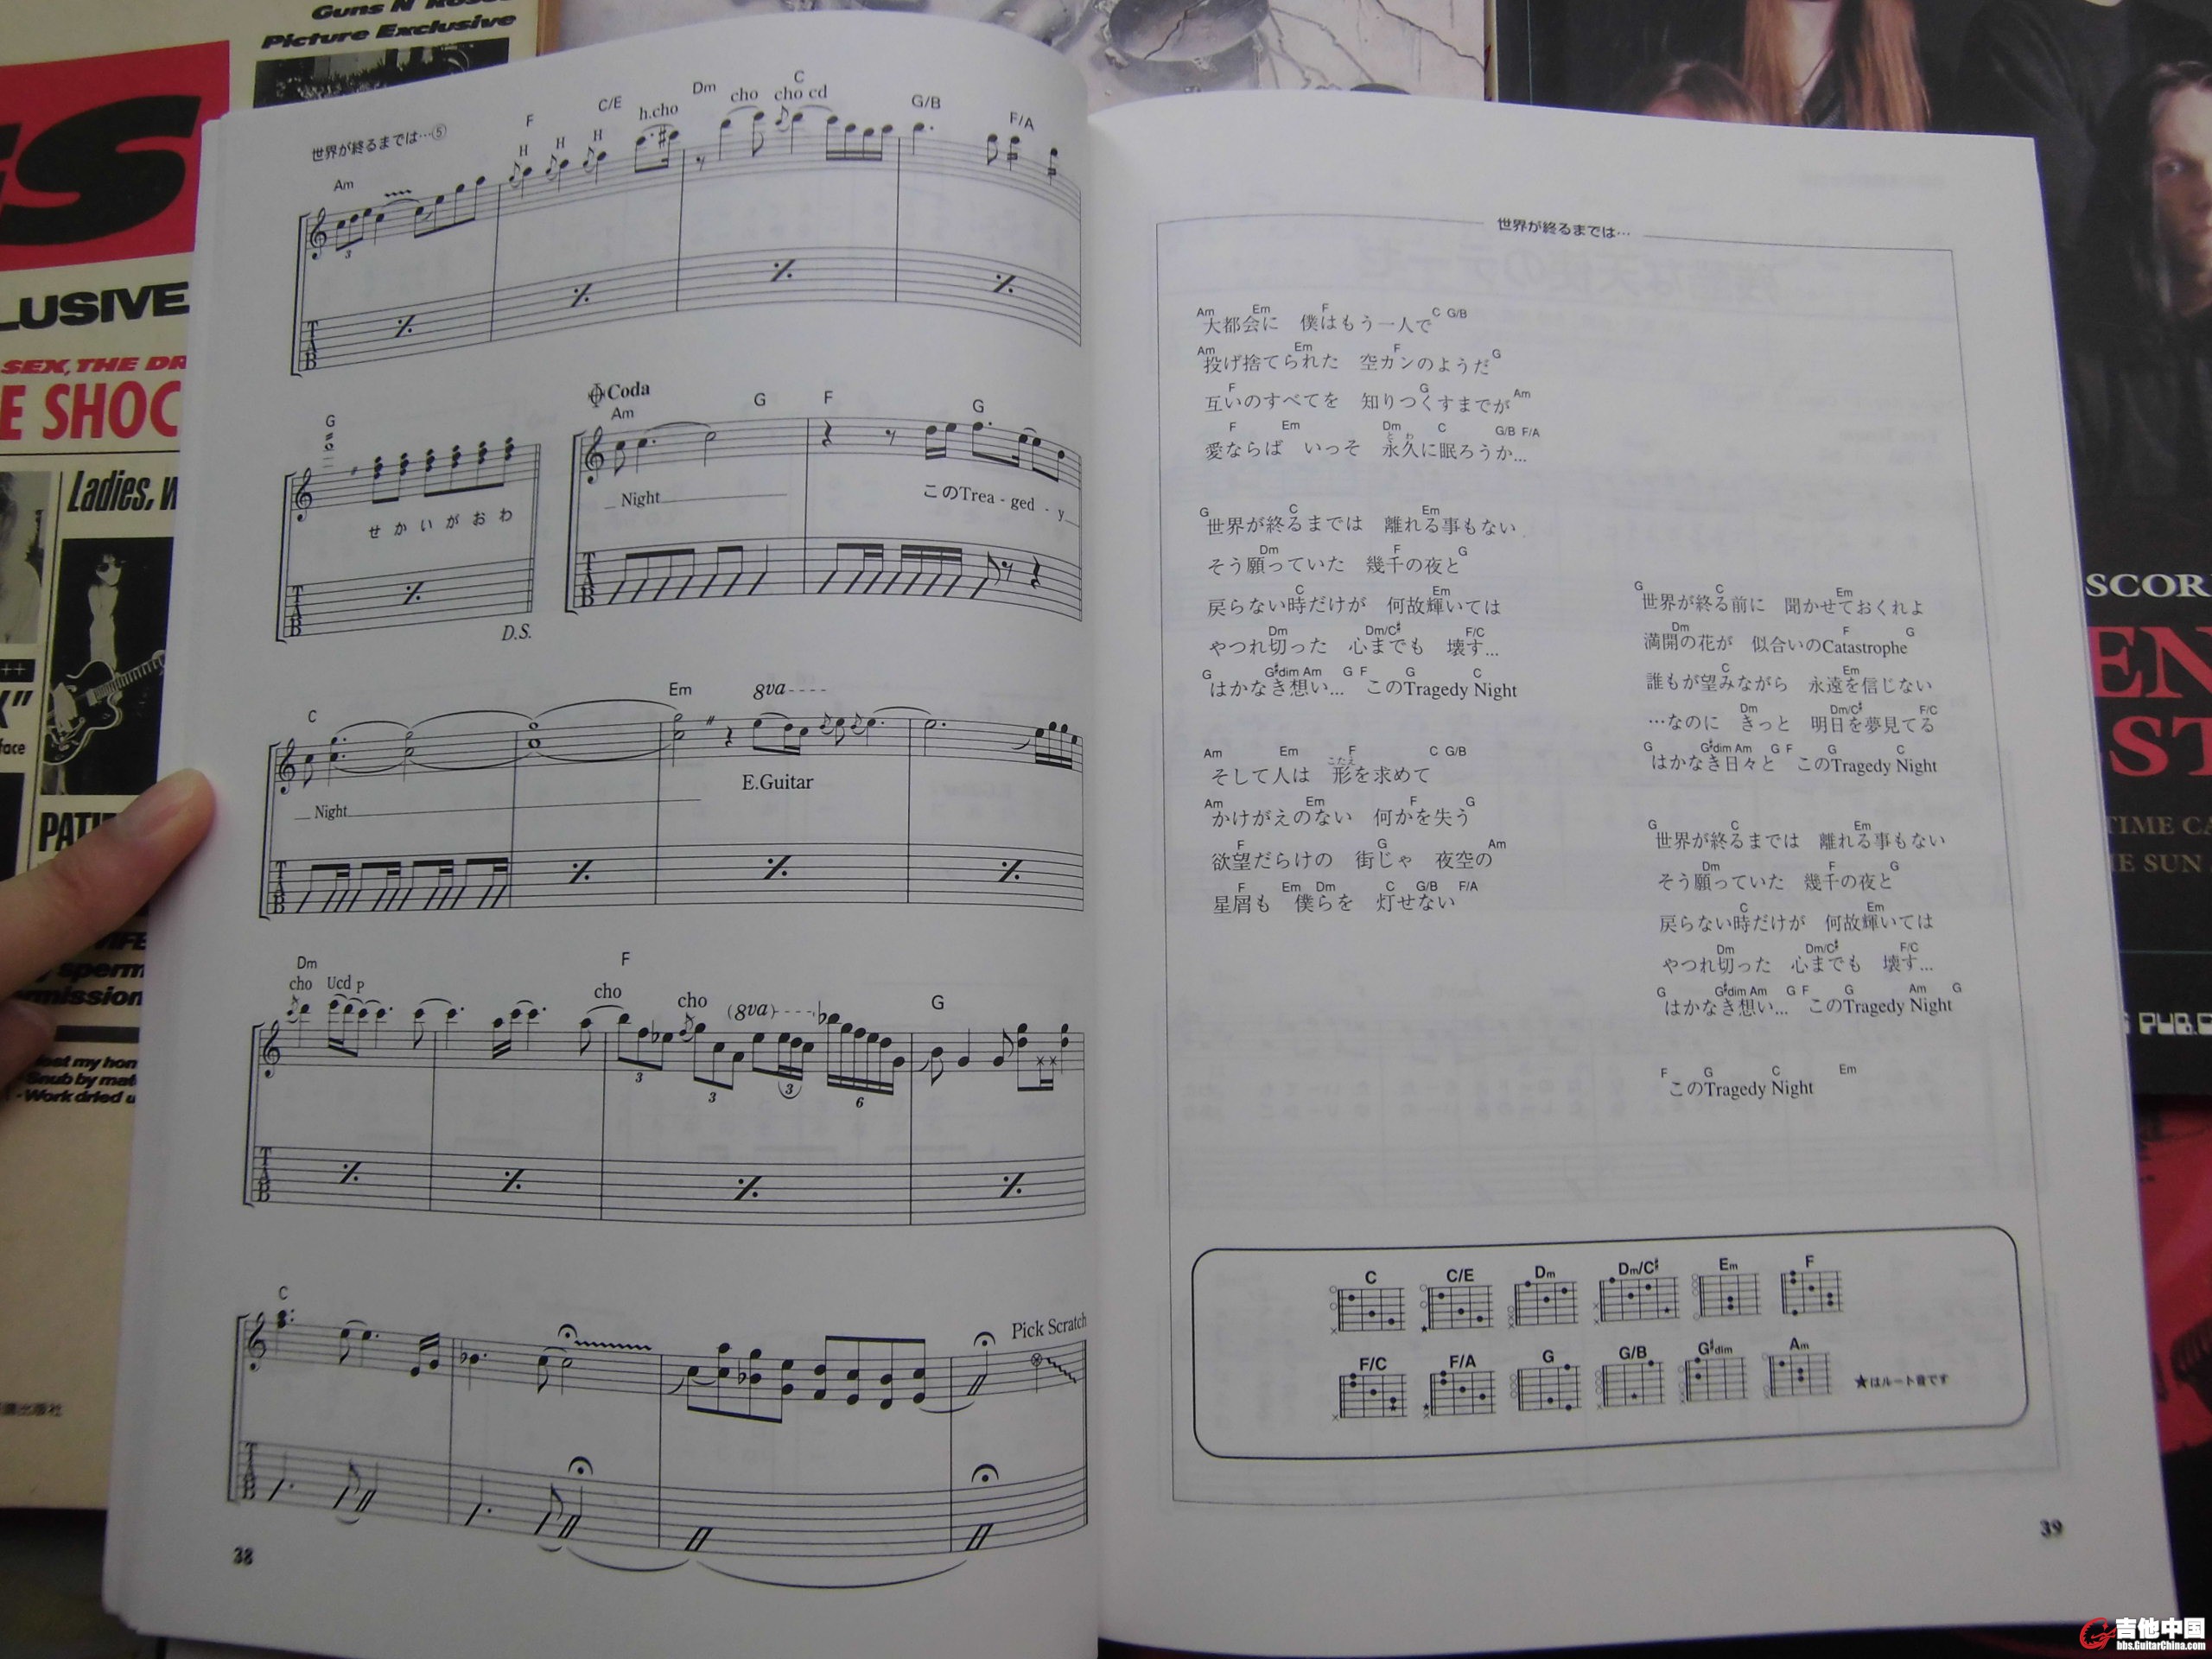 Guns N' Roses
Picture Exclusive
LUSIVE
SEX, THE DR
E SHOC
Ladies, w
face
PATIE
WIFE
sperm
rmission
lost my hom
Snub by mat
- Work dried u
世界が終るまでは…⑤
F C/E Dm C G/B F/A
H H H h.cho cho cho cd
Am
3
T
A
B
G
せ か い が お わ
D.S.
Coda
Am G F G
Night このTrea - ged - y
T
A
B
C Em 8va
E.Guitar
Night
T
A
B
Dm F G
cho Ucd P cho cho (8va)
3 3 3 6
T
A
B
C
Pick Scratch
T
A
B
38
世界が終るまでは…
Am Em F C G/B
大都会に 僕はもう一人で
Am Em F G
投げ捨てられた 空カンのようだ
F G Am
互いのすべてを 知りつくすまでが
F Em Dm C G/B F/A
とわ
愛ならば いっそ 永久に眠ろうか…
G C Em
世界が終るまでは 離れる事もない
Dm F G
そう願っていた 幾千の夜と
C Em
戻らない時だけが 何故輝いては
Dm Dm/C♯ F/C
やつれ切った 心までも 壊す…
G G♯dim Am G F G C
はかなき想い… このTragedy Night
Am Em F C G/B
こたえ
そして人は 形を求めて
Am Em F G
かけがえのない 何かを失う
F G Am
欲望だらけの 街じゃ 夜空の
F Em Dm C G/B F/A
星屑も 僕らを 灯せない
G C Em
世界が終る前に 聞かせておくれよ
Dm F G
満開の花が 似合いのCatastrophe
C Em
誰もが望みながら 永遠を信じない
Dm Dm/C♯ F/C
…なのに きっと 明日を夢見てる
G G♯dim Am G F G C
はかなき日々と このTragedy Night
G C Em
世界が終るまでは 離れる事もない
Dm F G
そう願っていた 幾千の夜と
C Em
戻らない時だけが 何故輝いては
Dm Dm/C♯ F/C
やつれ切った 心までも 壊す…
G G♯dim Am G F G Am G
はかなき想い… このTragedy Night
F G C Em
このTragedy Night
C C/E Dm Dm/C♯ Em F
F/C F/A G G/B G♯dim Am
★はルート音です
39
SCOR
EN
ST
TIME CA
HE SUN
PUB.
吉他中国
bbs.GuitarChina.com